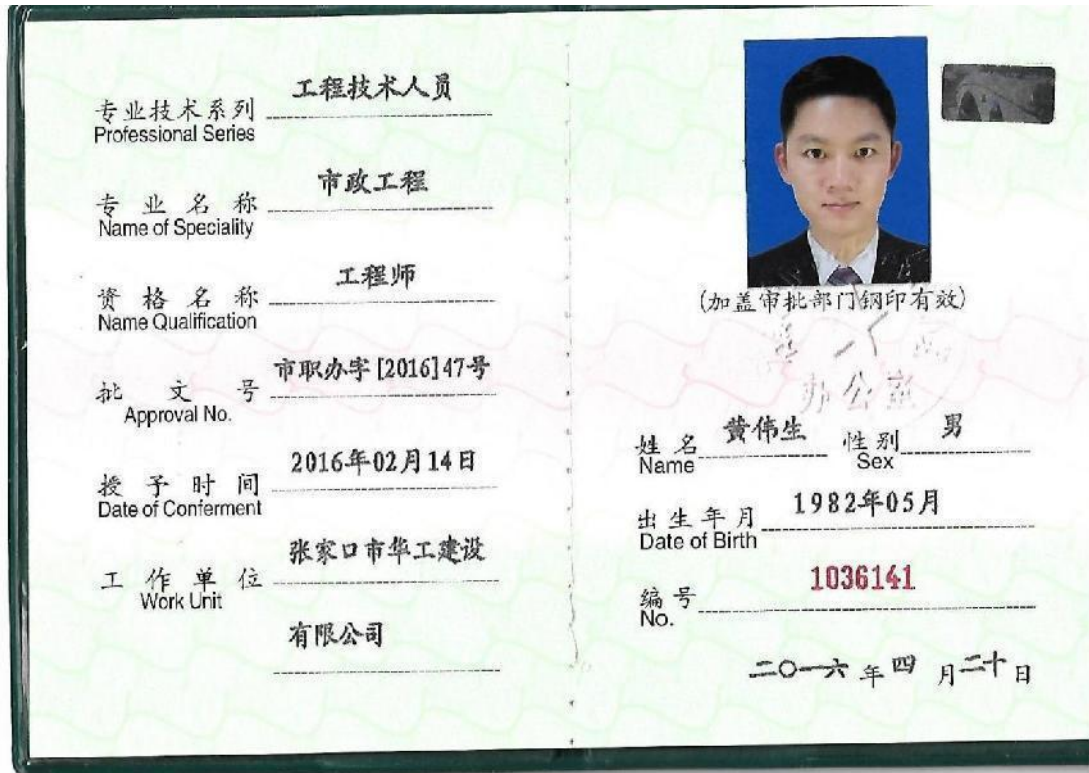 专业技术系列 工程技术人员
Professional Series
专业名称 市政工程
Name of Speciality
资格名称 工程师
Name Qualification
批文号 市职办字[2016]47号
Approval No.
授予时间 2016年02月14日
Date of Conferment
工作单位 张家口市华工建设
Work Unit
有限公司
(加盖审批部门钢印有效)
办公室
姓名 黄伟生 性别 男
Name Sex
出生年月 1982年05月
Date of Birth
编号 1036141
No.
二〇一六年四月二十日